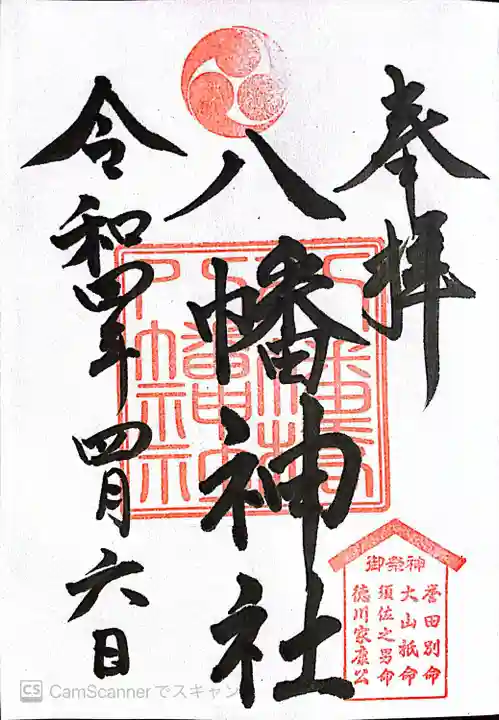 奉拝
八幡神社
令和四年四月六日
御祭神
誉田別命
大山祇命
須佐之男命
徳川家康公
CS CamScannerでスキャン